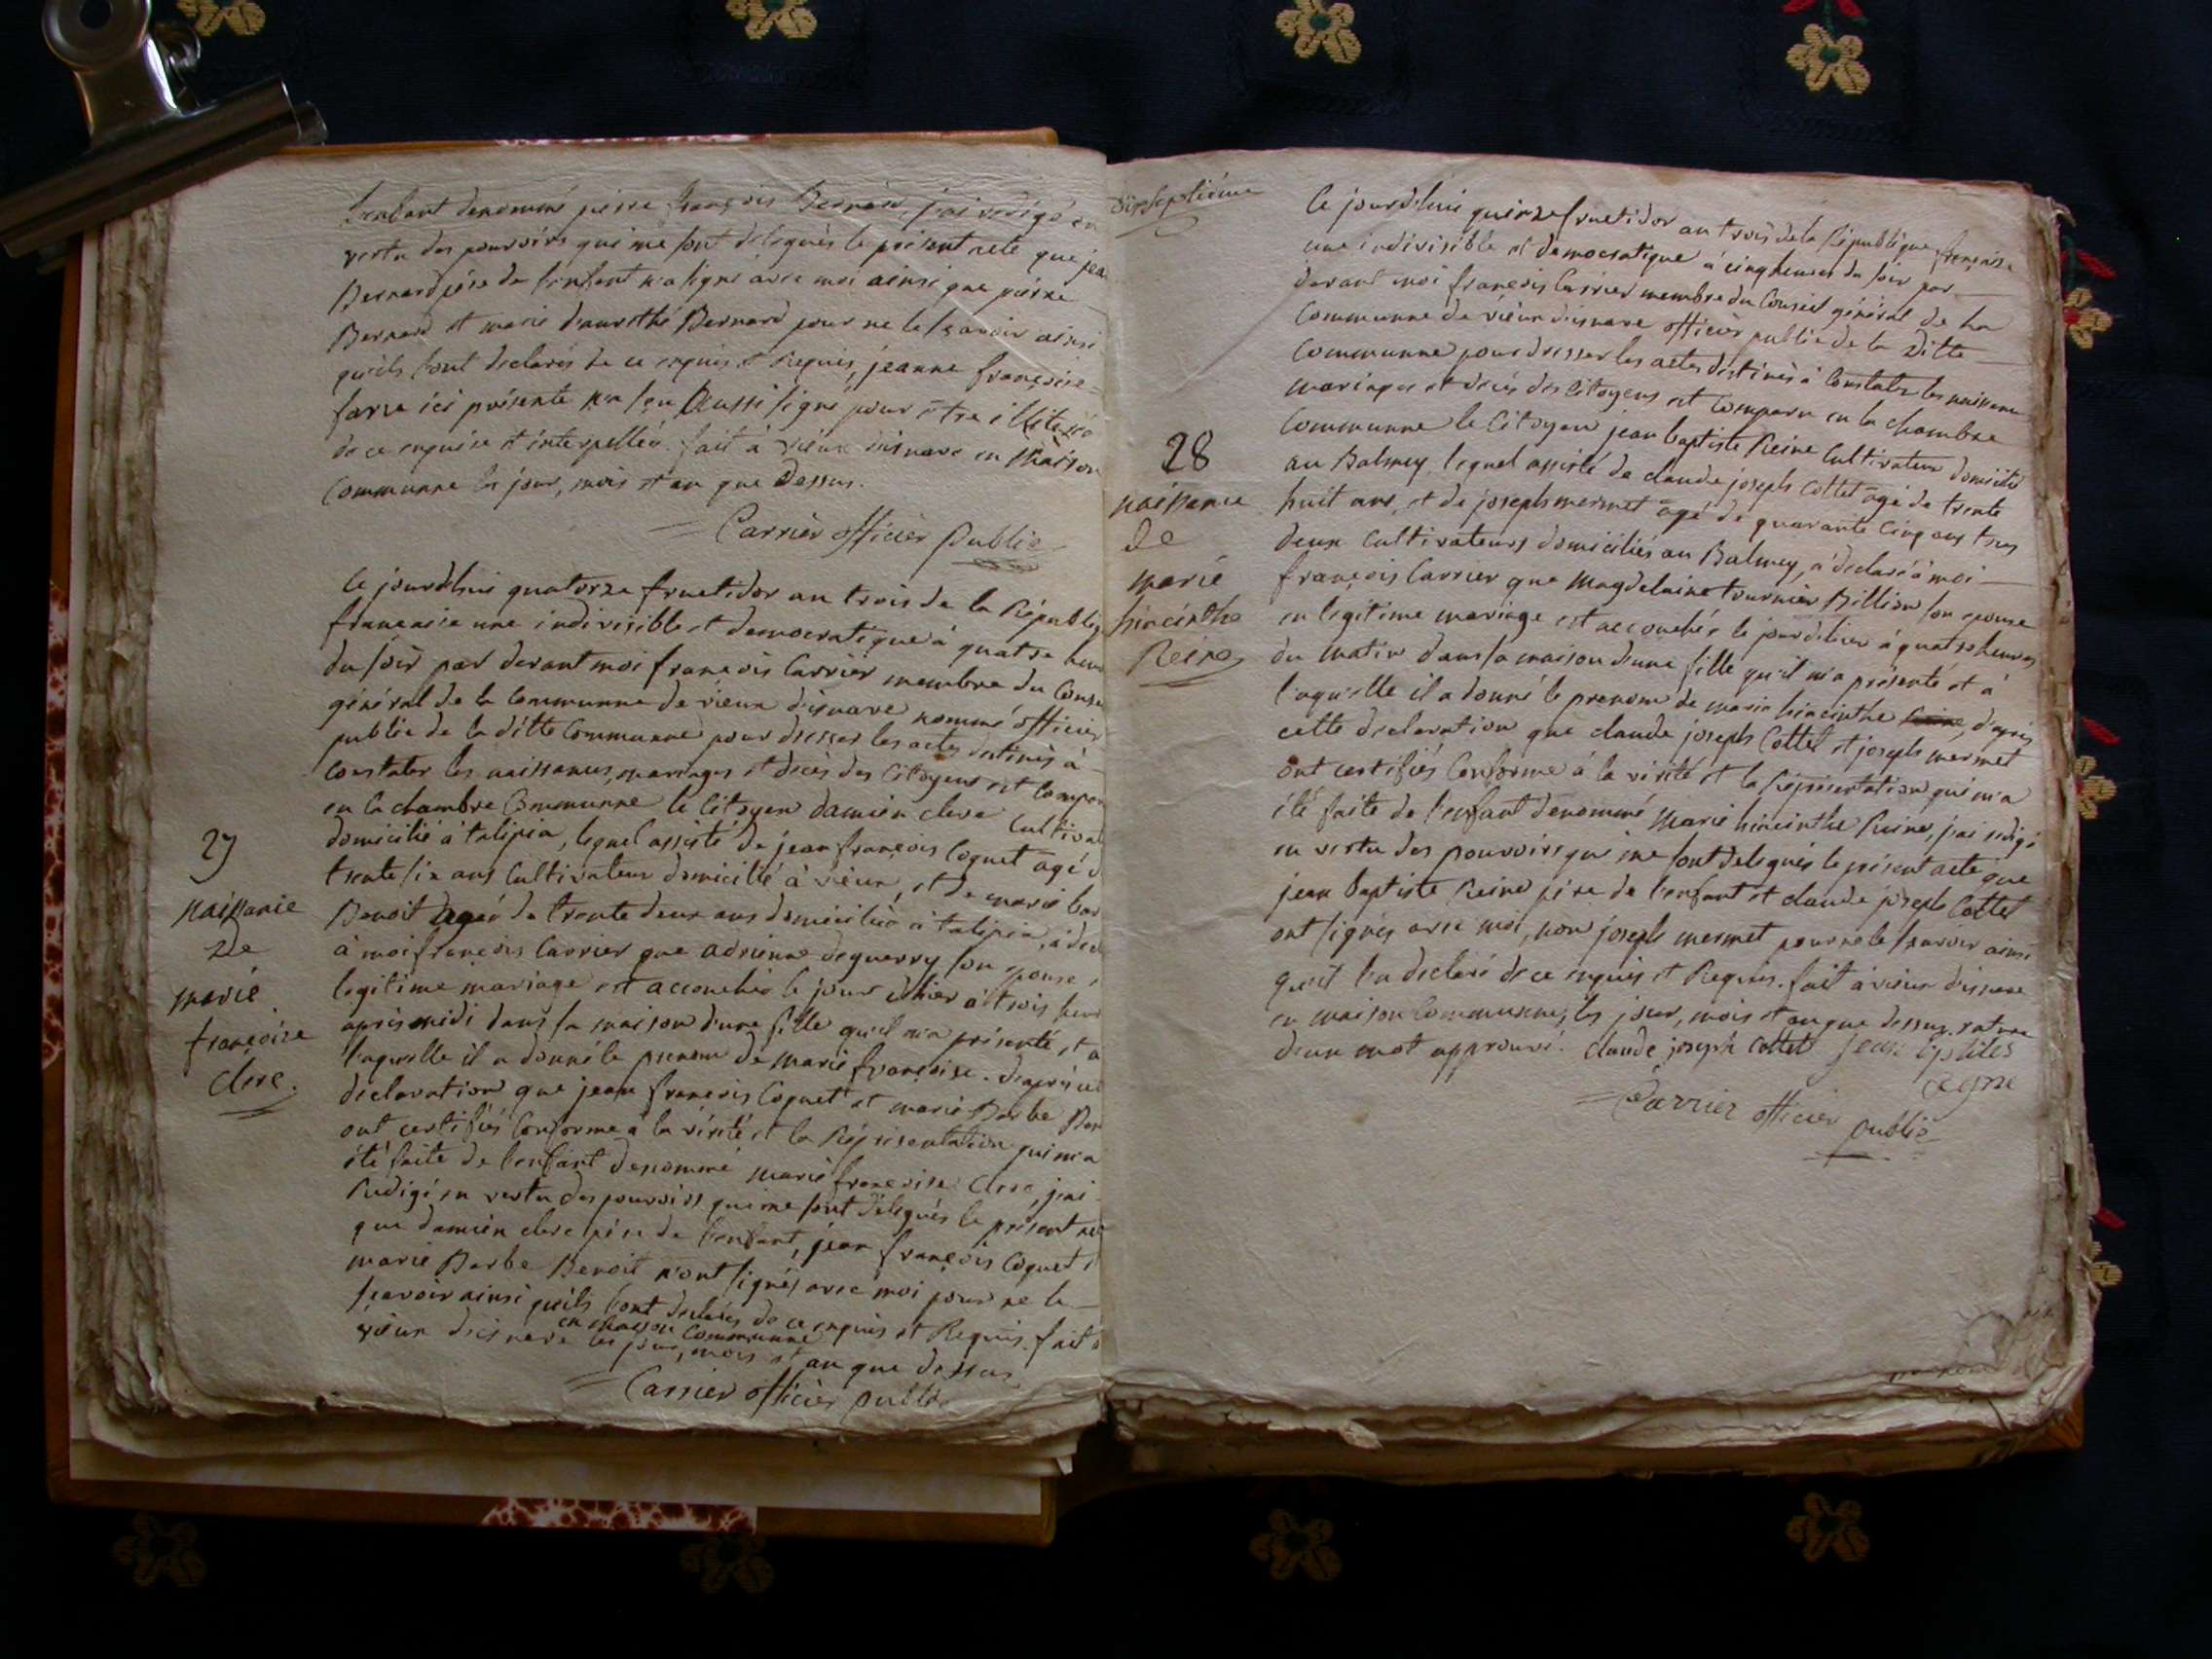 l'enfant denommé pierre françois Bernard, j'ai redigé en
vertu des pouvoirs qui me sont delegués le présent acte que jean
Bernard père de l'enfant n'a signé avec moi ainsi que pierre
Bernard et marie Bernard pour ne le sçavoir ainsi
qu'ils l'ont declarés de ce enquis et Requis, jeanne françoise
favre ici présente n'a pu aussi signé pour être illiterée
de ce enquise et interpellée. fait à vieux disnave en maison
Communne les jour, mois et an que dessus.
Carrier officier public
Ce jourdhui quatorze fructidor an trois de la Républiq
françaisse une indivisible et democratique à quatre heures
du soir par devant moi françois Carrier membre du Conse
général de la Communne de vieux d'isnave nommé officier
public de la ditte Communne pour dresser les actes destinés à
Constater les naissances, mariages et décès des Citoyens est Compar
en la chambre Communne le Citoyen damien clerc Cultivat
domicilié à talipia, lequel assisté de jean françois Coquet agé d
trente six ans Cultivateur domicilié à vieux, et de marie bar
Benoit agée de trente deux ans domiciliée à talipia, a decl
à moi françois Carrier que adrienne deguerry son epouse,
legitime mariage est accouchée le jour d'hier à trois heur
après midi dans sa maison d'une fille qu'il m'a présenté et a
laquelle il a donné le prenom de marie françoise. d'après cet
declaration que jean françois Coquet et marie Barbe Ben
ont certifiés Conforme à la vérité et la Réprésentation qui m'a
été faite de l'enfant denommé marie françoise clerc, j'ai
Redigé en vertu des pouvoirs qui me sont délegués le présent act
que damien clerc père de l'enfant, jean françois Coquet e
marie Barbe Benoit n'ont signés avec moi pour ne le
sçavoir ainsi qu'ils l'ont declarés de ce enquis et Requis. fait à
en maison Communne
vieux disnave les jour, mois et an que dessus
Carrier officier public
27
naissance
de
marie
françoise
clerc.
Dixseptième
Ce jourdhui quinze fructidor an trois de la République françaisse
une indivisible et democratique à cinq heures du soir par
devant moi françois Carrier membre du Conseil général de la
Communne de vieux d'isnave officier public de la ditte
Communne pour dresser les actes destinés à Constater les naissances
mariages et décès des Citoyens est Comparu en la chambre
Communne le Citoyen jean baptiste Reine Cultivateur domicilié
au Balmey, lequel assisté de claude joseph Cottet agé de trente
huit ans, et de joseph mermet agé de quarante Cinq ans tous
deux Cultivateurs domiciliés au Balmey, à declaré à moi
françois Carrier que Magdelaine tournier Billion son epouse
en legitime mariage est accouchée le jour d'hier à quatre heures
du matin dans sa maison d'une fille qu'il m'a présenté et à
laquelle il a donné le prenom de marie hiacinthe Reine, d'après
cette declaration que claude joseph Cottet et joseph mermet
ont certifiés Conforme à la vérité et la Réprésentation qui m'a
été faite de l'enfant denommé Marie hiacinthe Reine, j'ai redigé
en vertu des pouvoirs qui me sont delegués le présent acte que
jean Baptiste Reine père de l'enfant et claude joseph Cottet
ont signés avec moi, non joseph mermet pour ne le sçavoir ainsi
qu'il l'a declaré de ce enquis et Requis. fait à vieux d'isnave
en maison Communne, les jour, mois et an que dessus. rature
d'un mot approuvé. claude joseph Cottet
Carrier officier
public
28
naissance
de
marie
hiacinthe
Reine